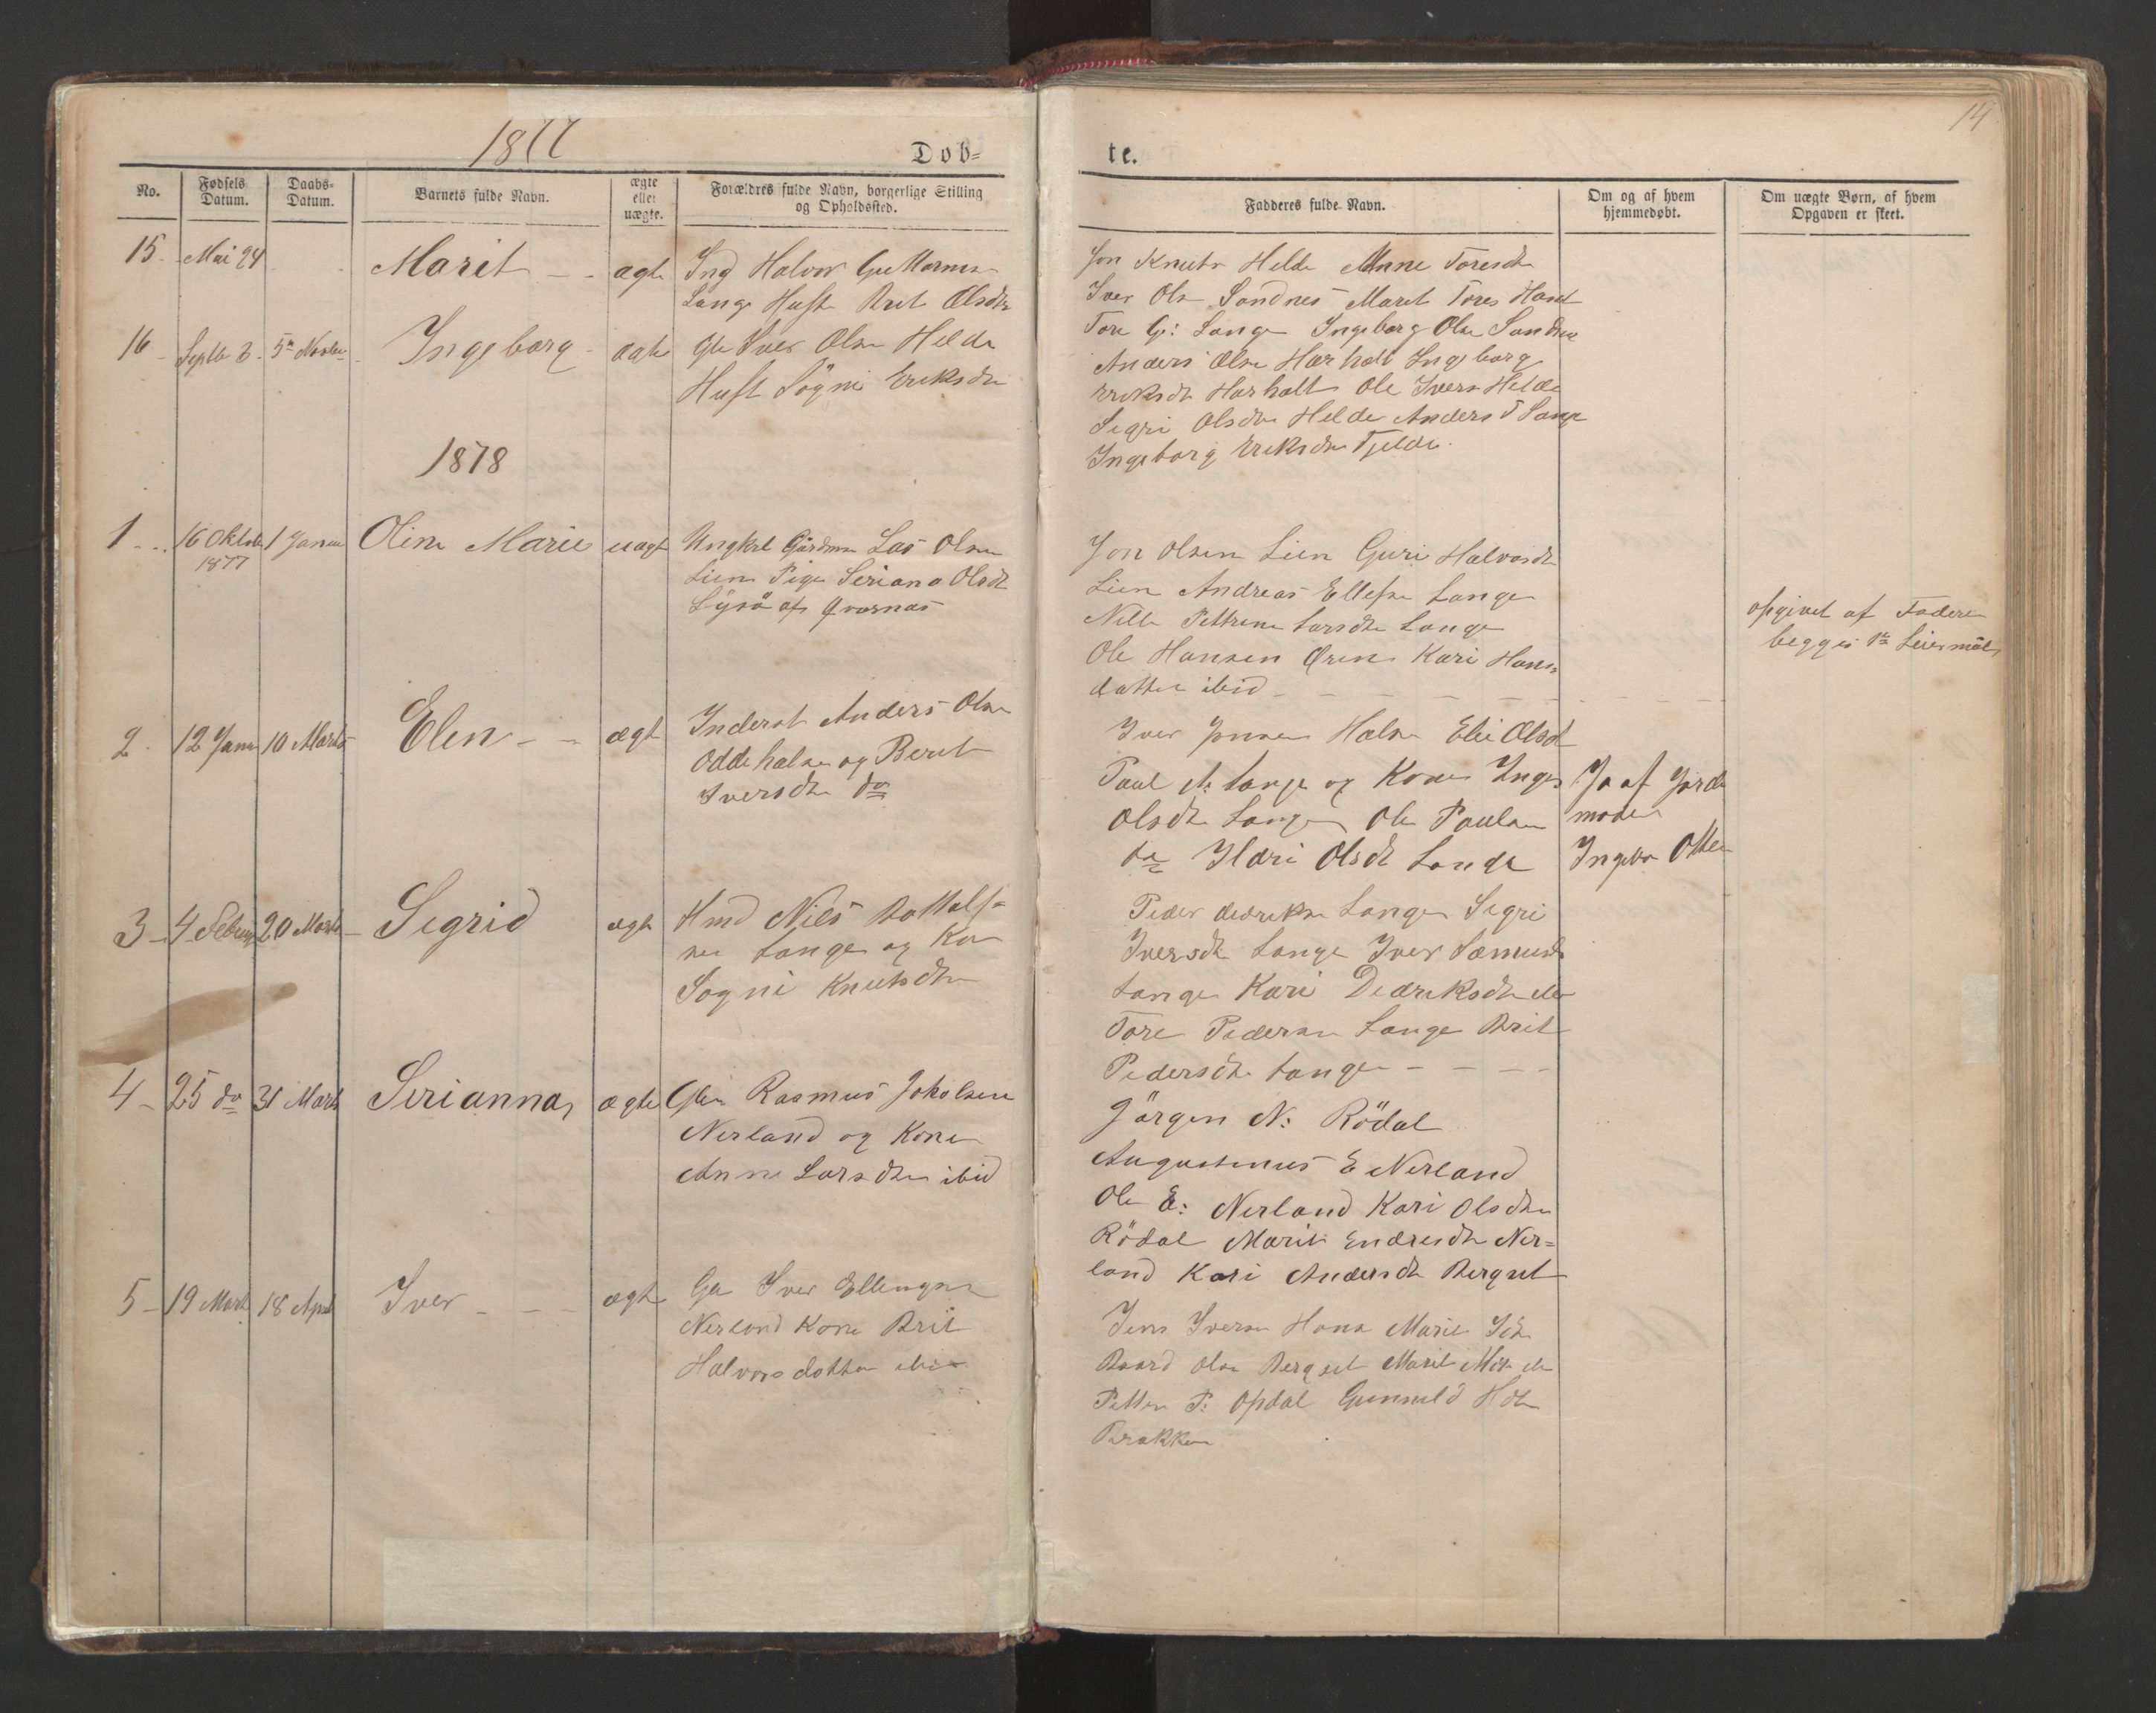 1877
Døb=
te.
14
No.
Fødsels Datum.
Daabs= Datum.
Barnets fulde Navn.
ægte eller uægte.
Forældres fulde Navn, borgerlige Stilling og Opholdssted.
Fadderes fulde Navn.
Om og af hvem hjemmedøbt.
Om uægte Børn, af hvem Opgaven er skeet.
15 Mai 24 Marit ægte Ind Halvor Guttorms
Lange Hust Brit Olsdtr
Jon Knuts Helde Anne Toresdtr
Iver Ols Sandnes Maret Tores
Tore G: Lange Ingeborg Olsn
16 Septb 3 5te Novbr Ingeborg ægte Iver Olsn Helde
Hust Sögni Eriksdtr
Anders Olsn Harhalt Ingeborg
Eriksdt Harhalt Ole Ivers Helde
Segri Olsdtr Helde Anders T Lange
Ingeborg Eriksdtr Tjelde
1878
1 16 Oktob 1877 1 Janua Oline Marie uægt Ungkrl Gårdmn Las Olsen
Lien Pige Seriana Olsdt
Lysö af Qvernæs
Jon Olsen Lien Guri Halvorsdt
Lien Andreas Ellefsn Lange
Nille Pettrine Larsdtr Lange
Ole Hansen Ören Kari Hans=
datter ibid
opgivet af Faderen
begges 1te Leiermål
2 12 Janu 10 Marts Elen ægt Inderst Anders Olsn
Oddehalsen og Berit
Iversdtr do
Iver Jonsen Halsn Eli Olsdt
Paul A: Lange og Kone Inger
Olsdtr Lange Ole Paulsn
do Olsdt Lange
Ja af Jorde
moder
Otte
3 4 Februar 20 Marts Segrid ægte Hmd Nils
Lange og Ko
ne Sogni Knutsdtr
Peder Lange Segri
Iversdt Lange Iver Sæmunds
Lange Kari Dedriksdtr
Tore Pedersn Lange Brit
Pedersdtr Lange
4 25 do 31 Marts Serianna ægte Rasmus
Nerland og Kone
Anne Larsdtr ibid
Jörgen N: Rödal
Augustinus E Nerland
Ole E: Nerland Kari Olsdtr
Rödal Marit Endresdtr Ner=
land Kari Andersdt Bergset
5 19 Mart 18 April Iver ægte Iver Ellingsn
Nerland Kone Brit
Halvorsdatter ibid
Jens Iversn Marit
Olsn Bergset Marit
Petter P: Opdal Gunnild Hdtr